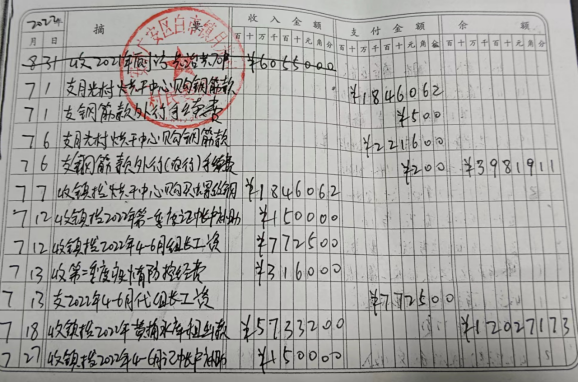 2022年 摘 收入金额 支付金额 余额
月 日 百十万千百十元角分 百十万千百十元角分 百十万千百十元角分
8 31 收2021年 ¥6055000
7 1 支月光村烘干中心购钢筋款 ¥1846062
7 1 支钢筋款外行手续费 ¥500
7 6 支月光村烘干中心购钢筋款 ¥221600
7 6 支钢筋款外行(农行)手续费 ¥200 ¥3981911
7 7 收镇拨烘干中心购买螺纹钢 ¥1846062
7 12 收镇拨2022年第一季度记帐补助 ¥150000
7 12 收镇拨2022年4-6月组长工资 ¥772500
7 13 收第二季度疫情防控经费 ¥316000
7 13 支2022年4-6月代组长工资 ¥772500
7 18 收镇拨2022年黄桷水库租金款 ¥5733200 ¥12027173
7 27 收镇拨2022年4-6月记帐补助 ¥150000